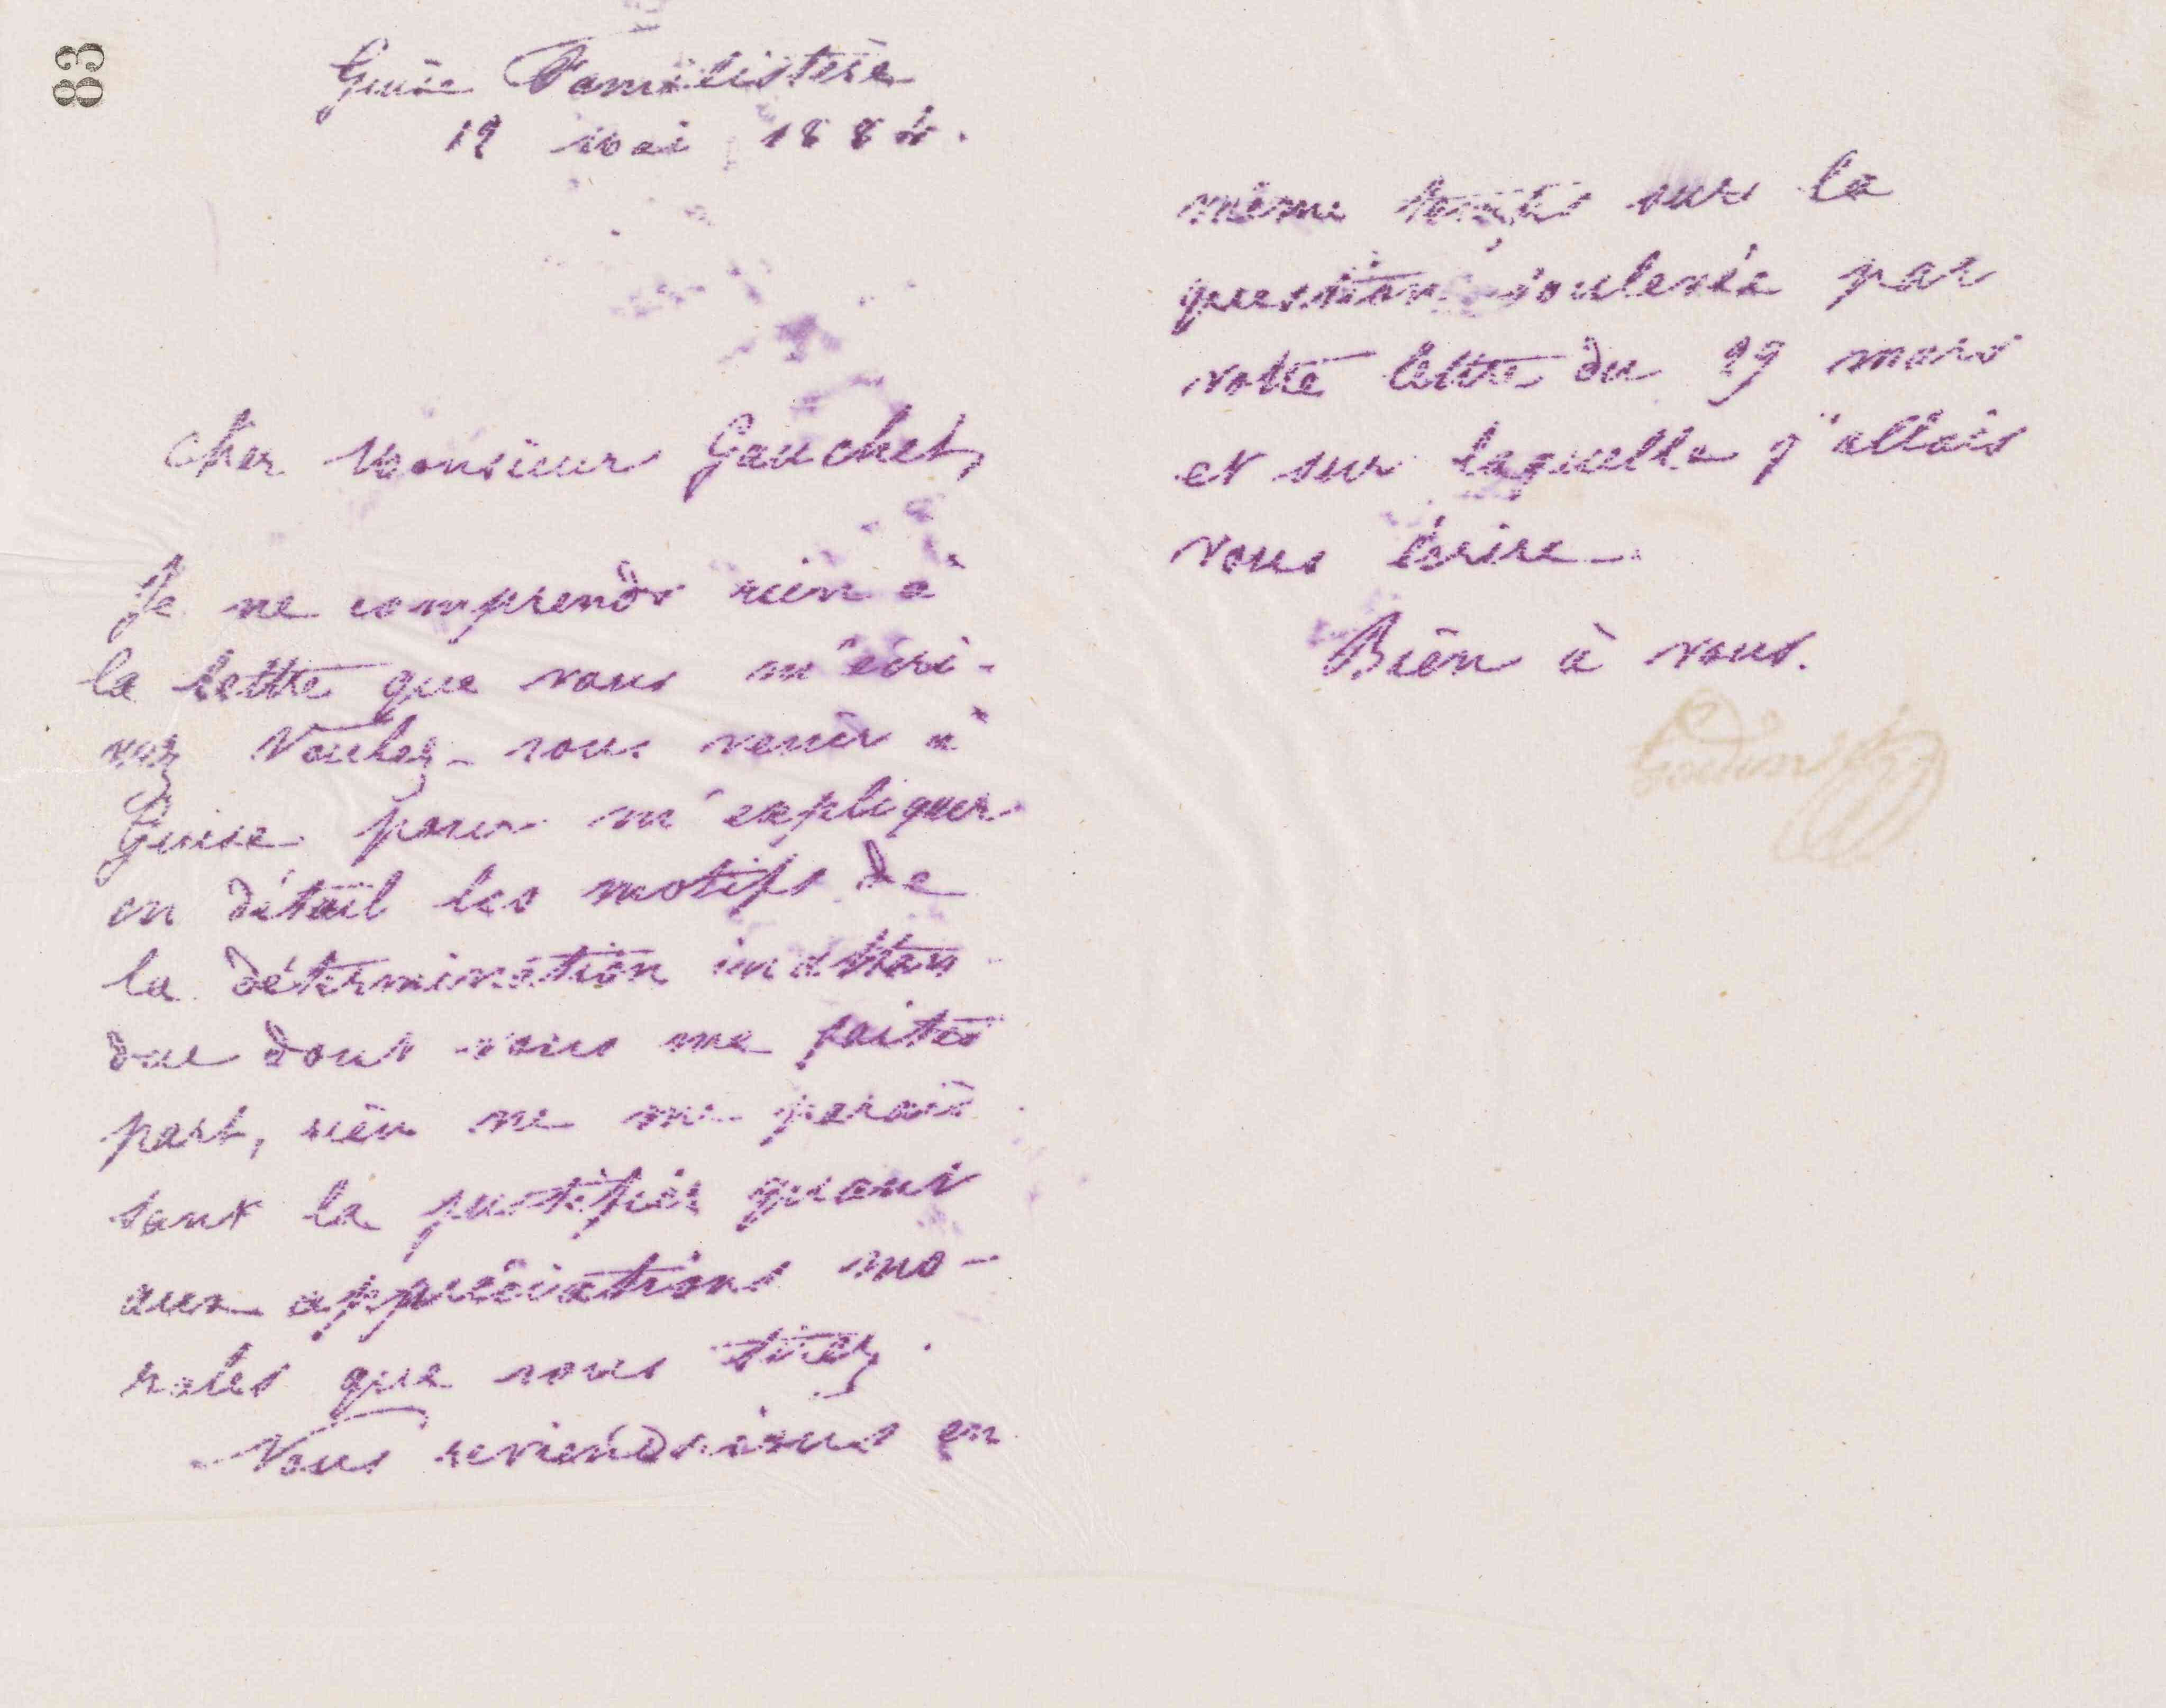 83
Guise Familistère
12 mai 1884.
Cher Monsieur Gauchet,
Je ne comprends rien à
la lettre que vous m'écri-
vez Voulez-vous venir à
Guise pour m'expliquer
en détail les motifs de
la détermination inatten-
due dont vous me faites
part, rien ne me parais
sant la justifier quant
aux appréciations mo-
rales que vous tirez.
Nous reviendrions en
même temps sur la
question soulevée par
votre lettre du 29 mars
et sur laquelle j'allais
vous écrire.
Bien à vous.
Godin